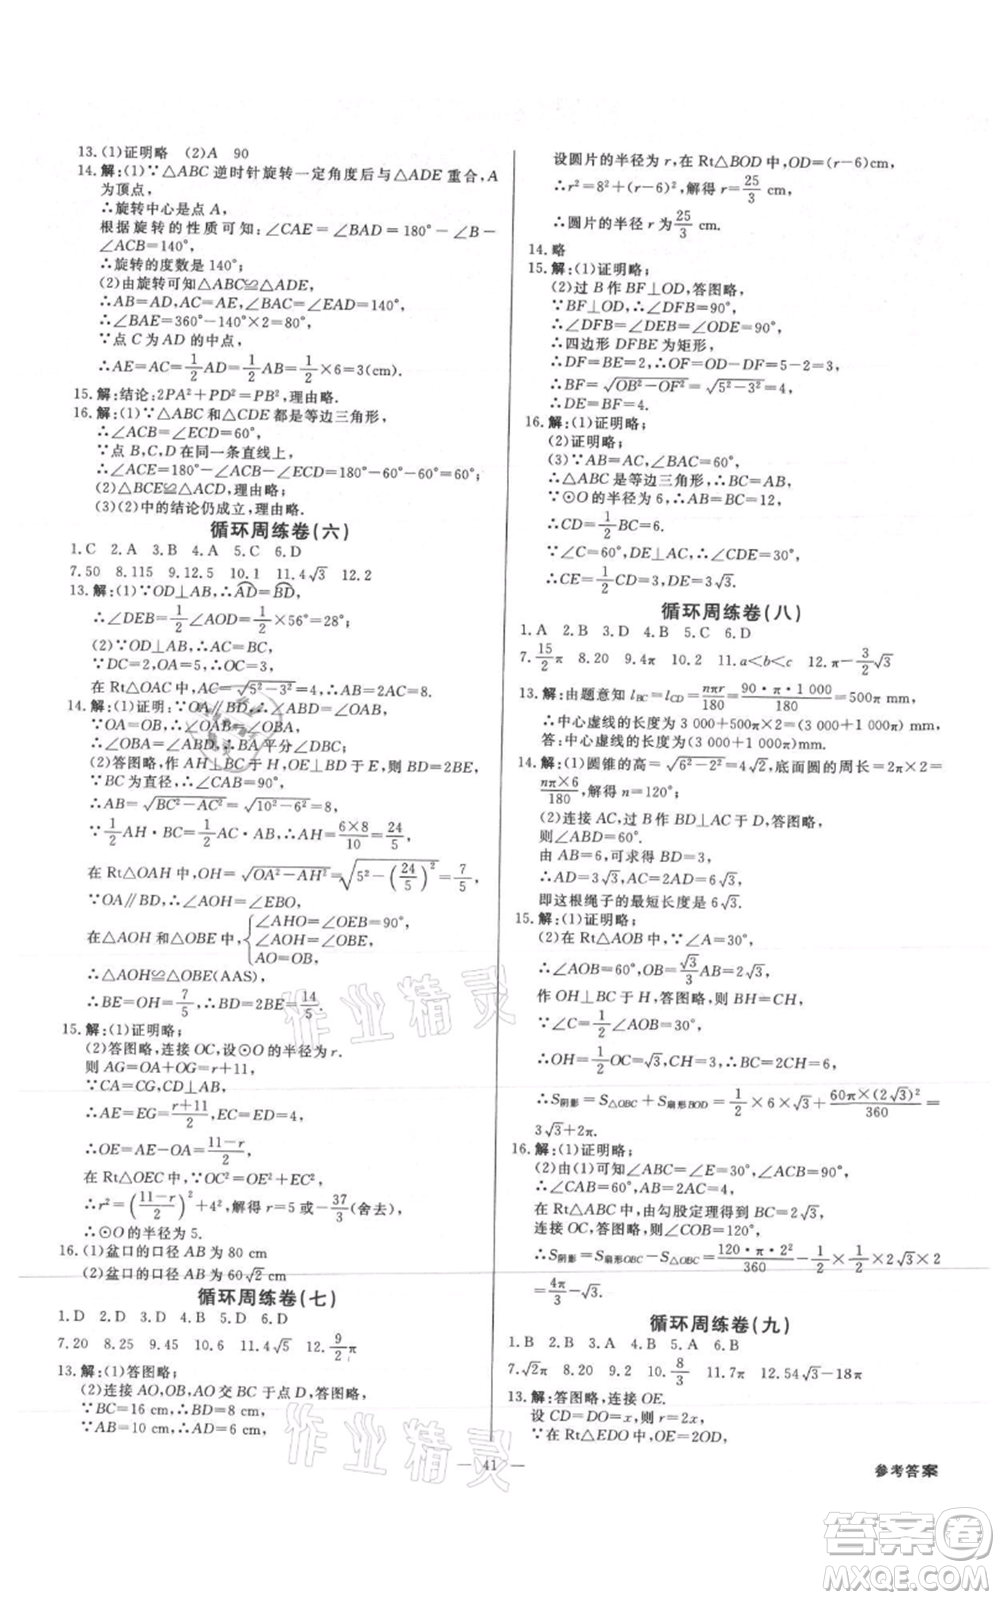 13.(1)证明略 (2)A 90
14.解:(1)∵△ABC 逆时针旋转一定角度后与△ADE 重合,A
为顶点,
∴旋转中心是点 A,
根据旋转的性质可知:∠CAE=∠BAD=180°-∠B-
∠ACB=140°,
∴旋转的度数是140°;
(2)由旋转可知△ABC≌△ADE,
∴AB=AD,AC=AE,∠BAD=∠EAD=140°,
∴∠BAE=360°-140°×2=80°;
∵点 C 为 AD 的中点,
∴AE=AC=1/2 AD=1/2×6=3(cm).
15.解:结论:2PA²+PD²=PB²,理由略.
16.解:(1)∵△ABC 和△CDE 都是等边三角形,
∴∠ACB=∠ECD=60°,
∵点 B,C,D 在同一条直线上,
∴∠ACE=180°-∠ACB-∠ECD=180°-60°-60°=60°;
(2)△BCE≌△ACD,理由略;
(3)(2)中的结论仍成立,理由略.
循环周练卷(六)
1.C 2.A 3.B 4.A 5.C 6.D
7.50 8.115 9.12.5 10.1 11.4√3 12.2
13.解:(1)∵OD⊥AB,∴AD=BD,
∴∠DEB=1/2∠AOD=1/2×56°=28°;
(2)∵OD⊥AB,∴AC=BC,
∵DC=2,OA=5,∴OC=3,
在 Rt△OAC 中,AC=√(5²-3²)=4,∴AB=8.
14.解:(1)证明:∵OA∥BD,∴∠ABD=∠OAB,
∵OA=OB,∴∠OAB=∠OBA,
∴∠OBA=∠ABD,∴BA 平分∠DBC;
(2)答图略,作 AH⊥BC 于 H,OE⊥BD 于 E,则 BD=2BE,
∵BC 为直径,∴∠CAB=90°,
∴AB=√(BC²-AC²)=√(10²-6²)=8,
∵1/2 AH·BC=1/2 AC·AB,∴AH=6×8/10=24/5,
在 Rt△OAH 中,OH=√(OA²-AH²)=√(5²-(24/5)²)=7/5,
∵OA∥BD,∴∠AOH=∠EBO,
在△AOH 和△OBE 中,{∠AHO=∠OEB=90°, ∠AOH=∠OBE, OA=OB,
∴△AOH≌△OBE(AAS),
∴BE=OH=7/5,∴BD=2BE=14/5.
15.解:(1)证明略;
(2)答图略,连接 OC,设⊙O 的半径为 r.
则 AG=OA+OG=r+11,
∵CA=CG,CD⊥AB,
∴AE=EG=(r+11)/2,EC=ED=4,
∴OE=AE-OA=(11-r)/2,
在 Rt△OEC 中,∵OC²=OE²+EC²,
∴r²=((11-r)/2)²+4²,解得 r=5 或-37/3(舍去),
∴⊙O 的半径为 5.
16.(1)盆口的口径 AB 为 80 cm
(2)盆口的口径 AB 为 60√2 cm
循环周练卷(七)
1.D 2.D 3.D 4.D 5.D 6.D
7.20 8.25 9.45 10.6 11.4√5 12.9/2 π
13.解:(1)答图略;
(2)连接 AO,OB,AO 交 BC 于点 D,答图略,
∵BC=16 cm,∴BD=8 cm,
∵AB=10 cm,∴AD=6 cm,
设圆片的半径为 r,在 Rt△BOD 中,OD=(r-6)cm,
∴r²=8²+(r-6)²,解得 r=25/3 cm,
∴圆片的半径 r 为25/3 cm.
14.略
15.解:(1)证明略;
(2)过 B 作 BF⊥OD,答图略,
∵BF⊥OD,∴∠DFB=90°,
∴∠DFB=∠DEB=∠ODE=90°,
∴四边形 DFBE 为矩形,
∴DF=BE=2,∴OF=OD-DF=5-2=3,
∴BF=√(OB²-OF²)=√(5²-3²)=4,
∴DE=BF=4.
16.解:(1)证明略;
(2)证明略;
(3)∵AB=AC,∠BAC=60°,
∴△ABC 是等边三角形,答图略,
∵⊙O 的半径为 6,∴AB=BC=12,
∴CD=1/2 BC=6.
∵∠C=60°,DE⊥AC,∴∠CDE=30°,
∴CE=1/2 CD=3.
循环周练卷(八)
1.A 2.B 3.D 4.B 5.C 6.D
7.15/2 π 8.20 9.4π 10.2 11.a<b<c 12.π-3/2 √3
13.解:由题意知 l_BC=l_CD=nπr/180=90·π·1 000/180=500π mm,
∴中心虚线的长度为 3 000+500π×2=(3 000+1 000π)mm,
答:中心虚线的长度为(3 000+1 000π)mm.
14.解:(1)圆锥的高=√(6²-2²)=4√2,底面圆的周长=2π×2=
nπ×6/180,解得 n=120°;
(2)连接 AC,过 B 作 BD⊥AC 于 D,答图略,
则∠ABD=60°.
由 AB=6,可求得 BD=3,
∴AD=3√3,AC=2AD=6√3,
即这根绳子的最短长度是 6√3.
15.解:(1)证明略;
(2)在 Rt△AOB 中,∵∠A=30°,
∴∠AOB=60°,OB=√3/3 AB=2√3,
作 OH⊥BC 于 H,答图略,则 BH=CH,
∵∠C=1/2∠AOB=30°,
∴OH=1/2 OC=√3,CH=√3 OH=3,∴BC=2CH=6,
∴S阴影=S△OBC+S扇形BOD=1/2×6×√3+60π×(2√3)²/360=
3√3+2π.
16.解:(1)证明略;
(2)由(1)可知∠ABC=∠E=30°,∠ACB=90°,
∴∠A=60°,AB=2AC=4,
在 Rt△ABC 中,由勾股定理得到 BC=2√3,
连接 OC,答图略,则∠COB=120°,
∴S阴影=S扇形OBC-S△OBC=120·π·2²/360-1/2×1/2 AC·BC=
4π/3-√3.
循环周练卷(九)
1.B 2.B 3.D 4.B 5.A 6.B
7.√2π 8.20 9.20 10.8/3 11.7π 12.54√3-18π
13.解:答图略,连接 OE.
设 CD=DO=x,则 r=2x,
∵在 Rt△EDO 中,OE=2OD,
— 41 —
参考答案
作业精灵
作业精灵
答案圈
MXQE.COM